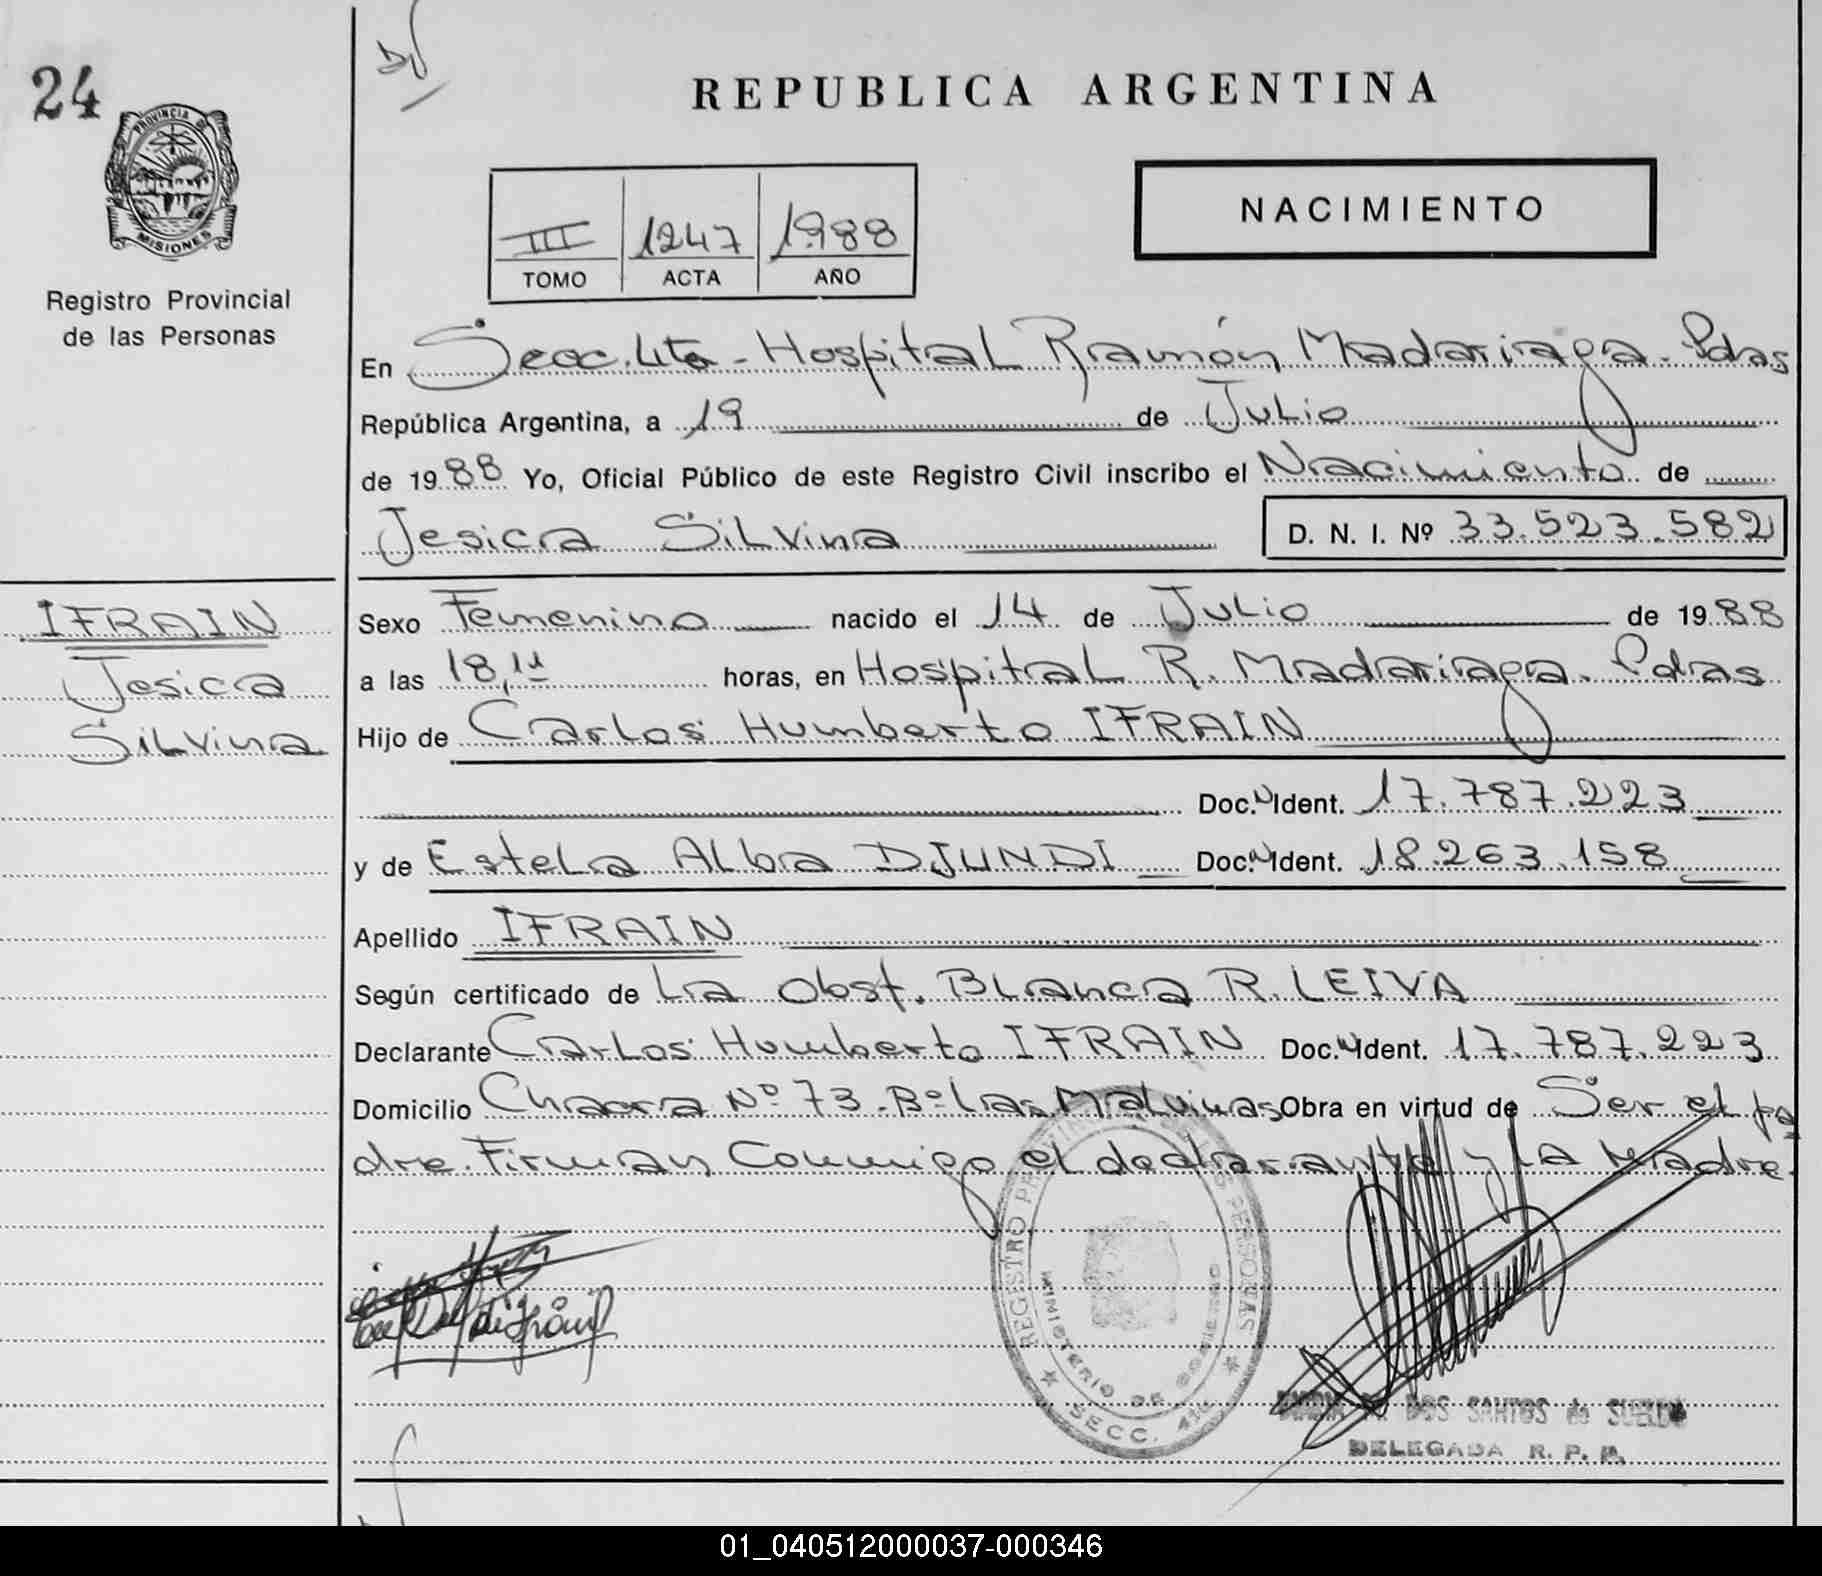 24
PROVINCIA DE
MISIONES
Registro Provincial
de las Personas
REPUBLICA ARGENTINA
III 1247 1988
TOMO ACTA AÑO
NACIMIENTO
En Secc. 4ta - Hospital Ramón Madariaga. Pdas
República Argentina, a 19 de Julio
de 1988 Yo, Oficial Público de este Registro Civil inscribo el Nacimiento de
Jesica Silvina D. N. I. Nº 33.523.582
IFRAIN
Jesica
Silvina
Sexo Femenino nacido el 14 de Julio de 1988
a las 18,11 horas, en Hospital R. Madariaga. Pdas
Hijo de Carlos Humberto IFRAIN
Doc. N Ident. 17.787.223
y de Estela Alba DJUNDI Doc. N Ident. 18.263.158
Apellido IFRAIN
Según certificado de La Obst. Blanca R. LEIVA
Declarante Carlos Humberto IFRAIN Doc. N Ident. 17.787.223
Domicilio Chacra Nº 73. Bº Las Malvinas Obra en virtud de Ser el pa
dre. Firman Conmigo el declarante y la Madre.
REGISTRO PROVINCIAL DE LAS PERSONAS
MINISTERIO DE GOBIERNO
SECC. 4ta
DOS SANTOS de SUELDO
DELEGADA R. P. P.
01_040512000037-000346